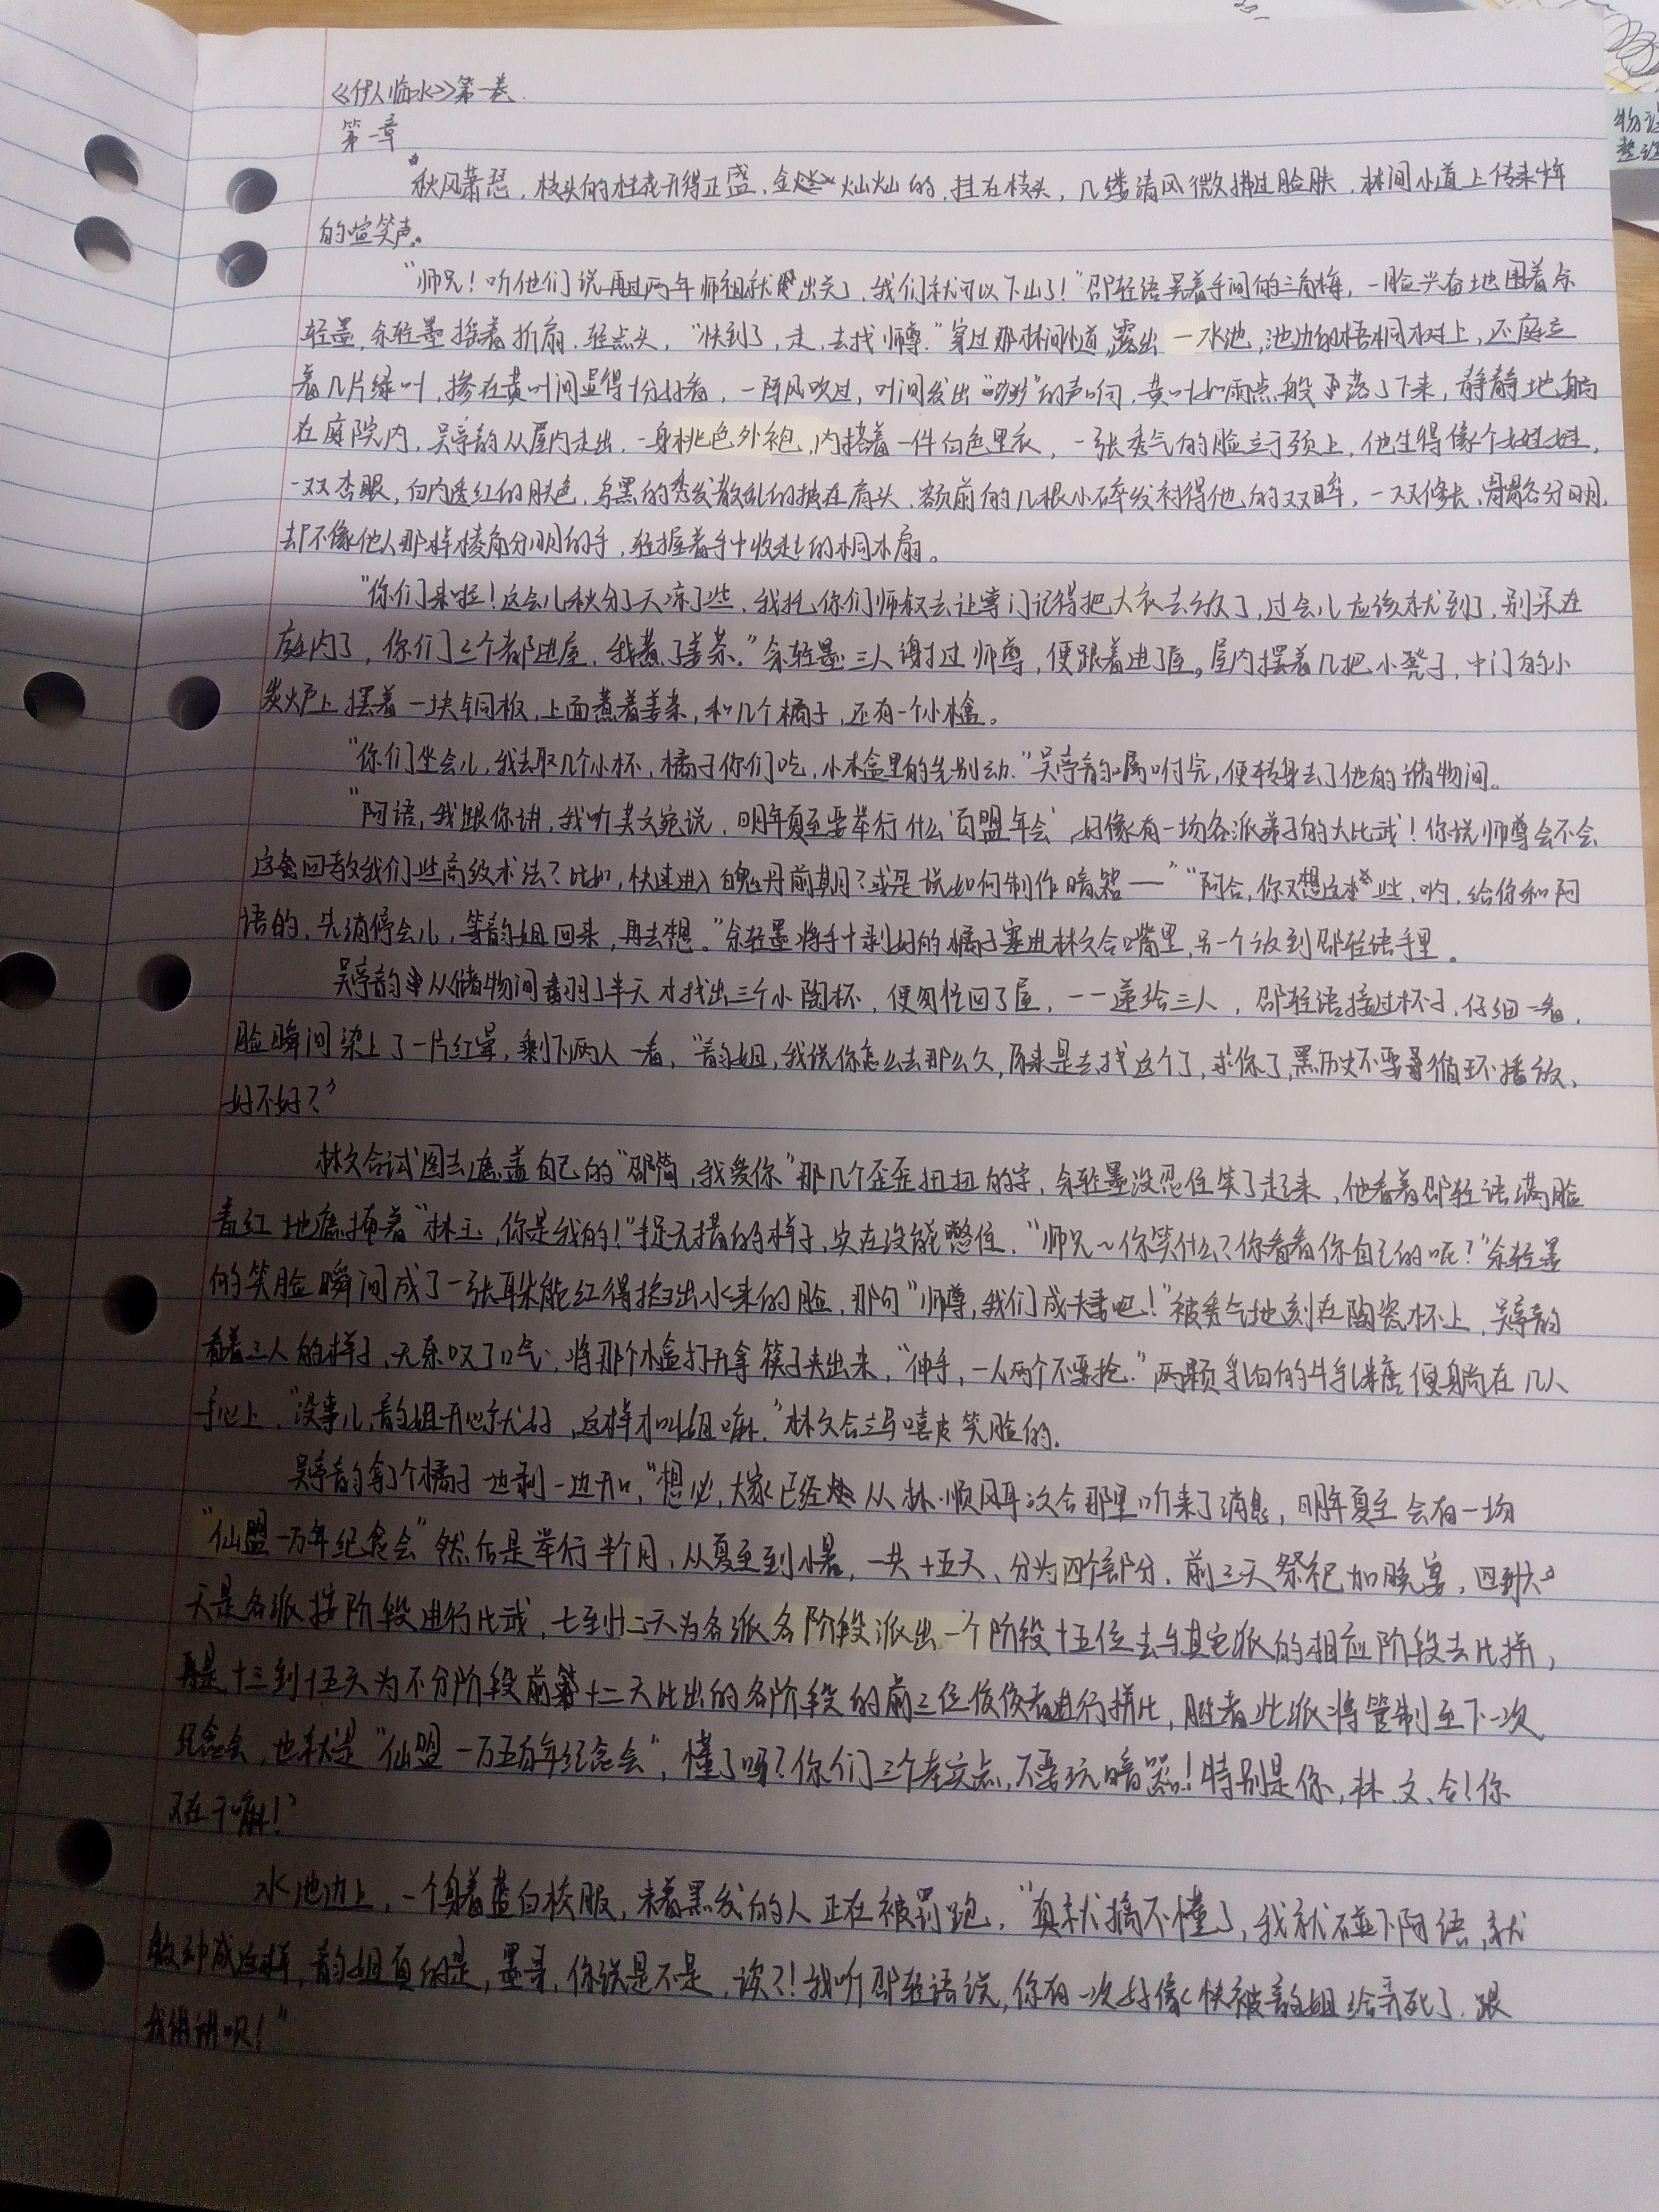 《伊人临水》第一卷.
第一章
秋风萧瑟，枝头的桂花开得正盛，金灿灿的，挂在枝头，几缕清风微拂过脸肤，林间小道上传来少年
的喧笑声。
"师兄！听他们说再过两年师祖就出关了，我们就可以下山了！"邵轻语晃着手间的三角梅，一脸兴奋地围着余
轻墨，余轻墨摇着折扇，轻点头，"快到了，走，去找师尊."穿过那林间小道，露出一水池，池边的梧桐树上，还庭立
着几片绿叶，掺在黄叶间显得十分好看，一阵风吹过，叶间发出"沙沙"的声响，黄叶如雨点般落了下来，静静地躺
在庭院内，吴亭韵从屋内走出，一身桃色外袍，内搭着一件白色里衣，一张秀气的脸立于颈上，他生得像个姑娃，
一双杏眼，白内透红的肤色，乌黑的秀发散乱的披在肩头，额前的几根小碎发衬得他的双眸，一双修长、骨骼分明，
却不像他人那样棱角分明的手，轻握着手中收起的桐木扇。
"你们来啦！这会儿秋分了天凉了些，我托你们师叔去让掌门记得把大衣去放了，过会儿应该就到了，别呆在
庭内了，你们三个都进屋，我煮了姜茶."余轻墨三人谢过师尊，便跟着进了屋。屋内摆着几把小凳子，中间的小
炭炉上摆着一块铜板，上面煮着姜茶，和几个橘子，还有一个小木盒。
"你们坐会儿，我去取几个小杯，橘子你们吃，小木盒里的先别动."吴亭韵嘱咐完，便转身去了他的储物间。
"阿语，我跟你讲，我听吴文宛说，明年夏至要举行什么'百盟年会'，好像有一场各派弟子的大比武！你说师尊会不会
这会回教我们些高级术法？比如，快速进入白魄丹前期？或是说如何制作暗器——""阿合，你又想这些，哟，给你和阿
语的，先消停会儿，等韵姐回来，再去想。"余轻墨将手中剥好的橘子塞进林文合嘴里，另一个放到邵轻语手里。
吴亭韵从储物间翻了半天才找出三个小陶杯，便匆忙回了屋，一一递给三人，邵轻语接过杯子，仔细一看，
脸瞬间染上了一片红晕，剩下两人一看，"韵姐，我说你怎么去那么久，原来是去找这个了，求你了，黑历史不要循环播放，
好不好？"
林文合试图去遮盖自己的"邵简，我爱你"那几个歪歪扭扭的字，余轻墨没忍住笑了起来，他看着邵轻语满脸
羞红地遮掩着"林玉，你是我的！"手足无措的样子，实在没能憋住，"师兄～你笑什么？你看看你自己的呢？"余轻墨
的笑脸瞬间成了一张耳朵能红得掐出水来的脸，那句"师尊，我们成婚吧！"被秀气地刻在陶瓷杯上，吴亭韵
看着三人的样子，无奈叹了口气，将那个木盒打开拿筷子夹出来，"伸手，一人两个不要抢."两颗乳白的牛乳糖便躺在几人
手心上，"没事儿，韵姐开心就好，这样才叫姐嘛."林文合立马嘻皮笑脸的。
吴亭韵拿了个橘子边剥一边开口，"想必，大家已经从林·顺风耳·文合那里听来了消息，明年夏至会有一场
"仙盟一万年纪念会"然后是举行半个月，从夏至到小暑，一共十五天、分为四个部分，前三天祭祀加晚宴，四到六
天是各派按阶段进行比武，七到十二天为各派各阶段派出一个阶段十五位去与其它派的相应阶段去比拼，
再是十三到十五天为不分阶段前十二天比出的各阶段的前三位佼佼者进行拼比，胜者此派将管制至下一次
纪念会，也就是"仙盟一万五百年纪念会"，懂了吗？你们三个老实点，不要玩暗器！特别是你，林、文、合！你
又在干嘛！"
水池边上，一个身着蓝白校服，束着黑发的人正在被罚跑，"真就搞不懂了，我就碰下阿语，就
被种成这样，韵姐真的是，墨哥，你说是不是，诶？！我听邵轻语说，你有一次好像快被韵姐给弄死了，跟
我讲讲呗！"
物理
整理